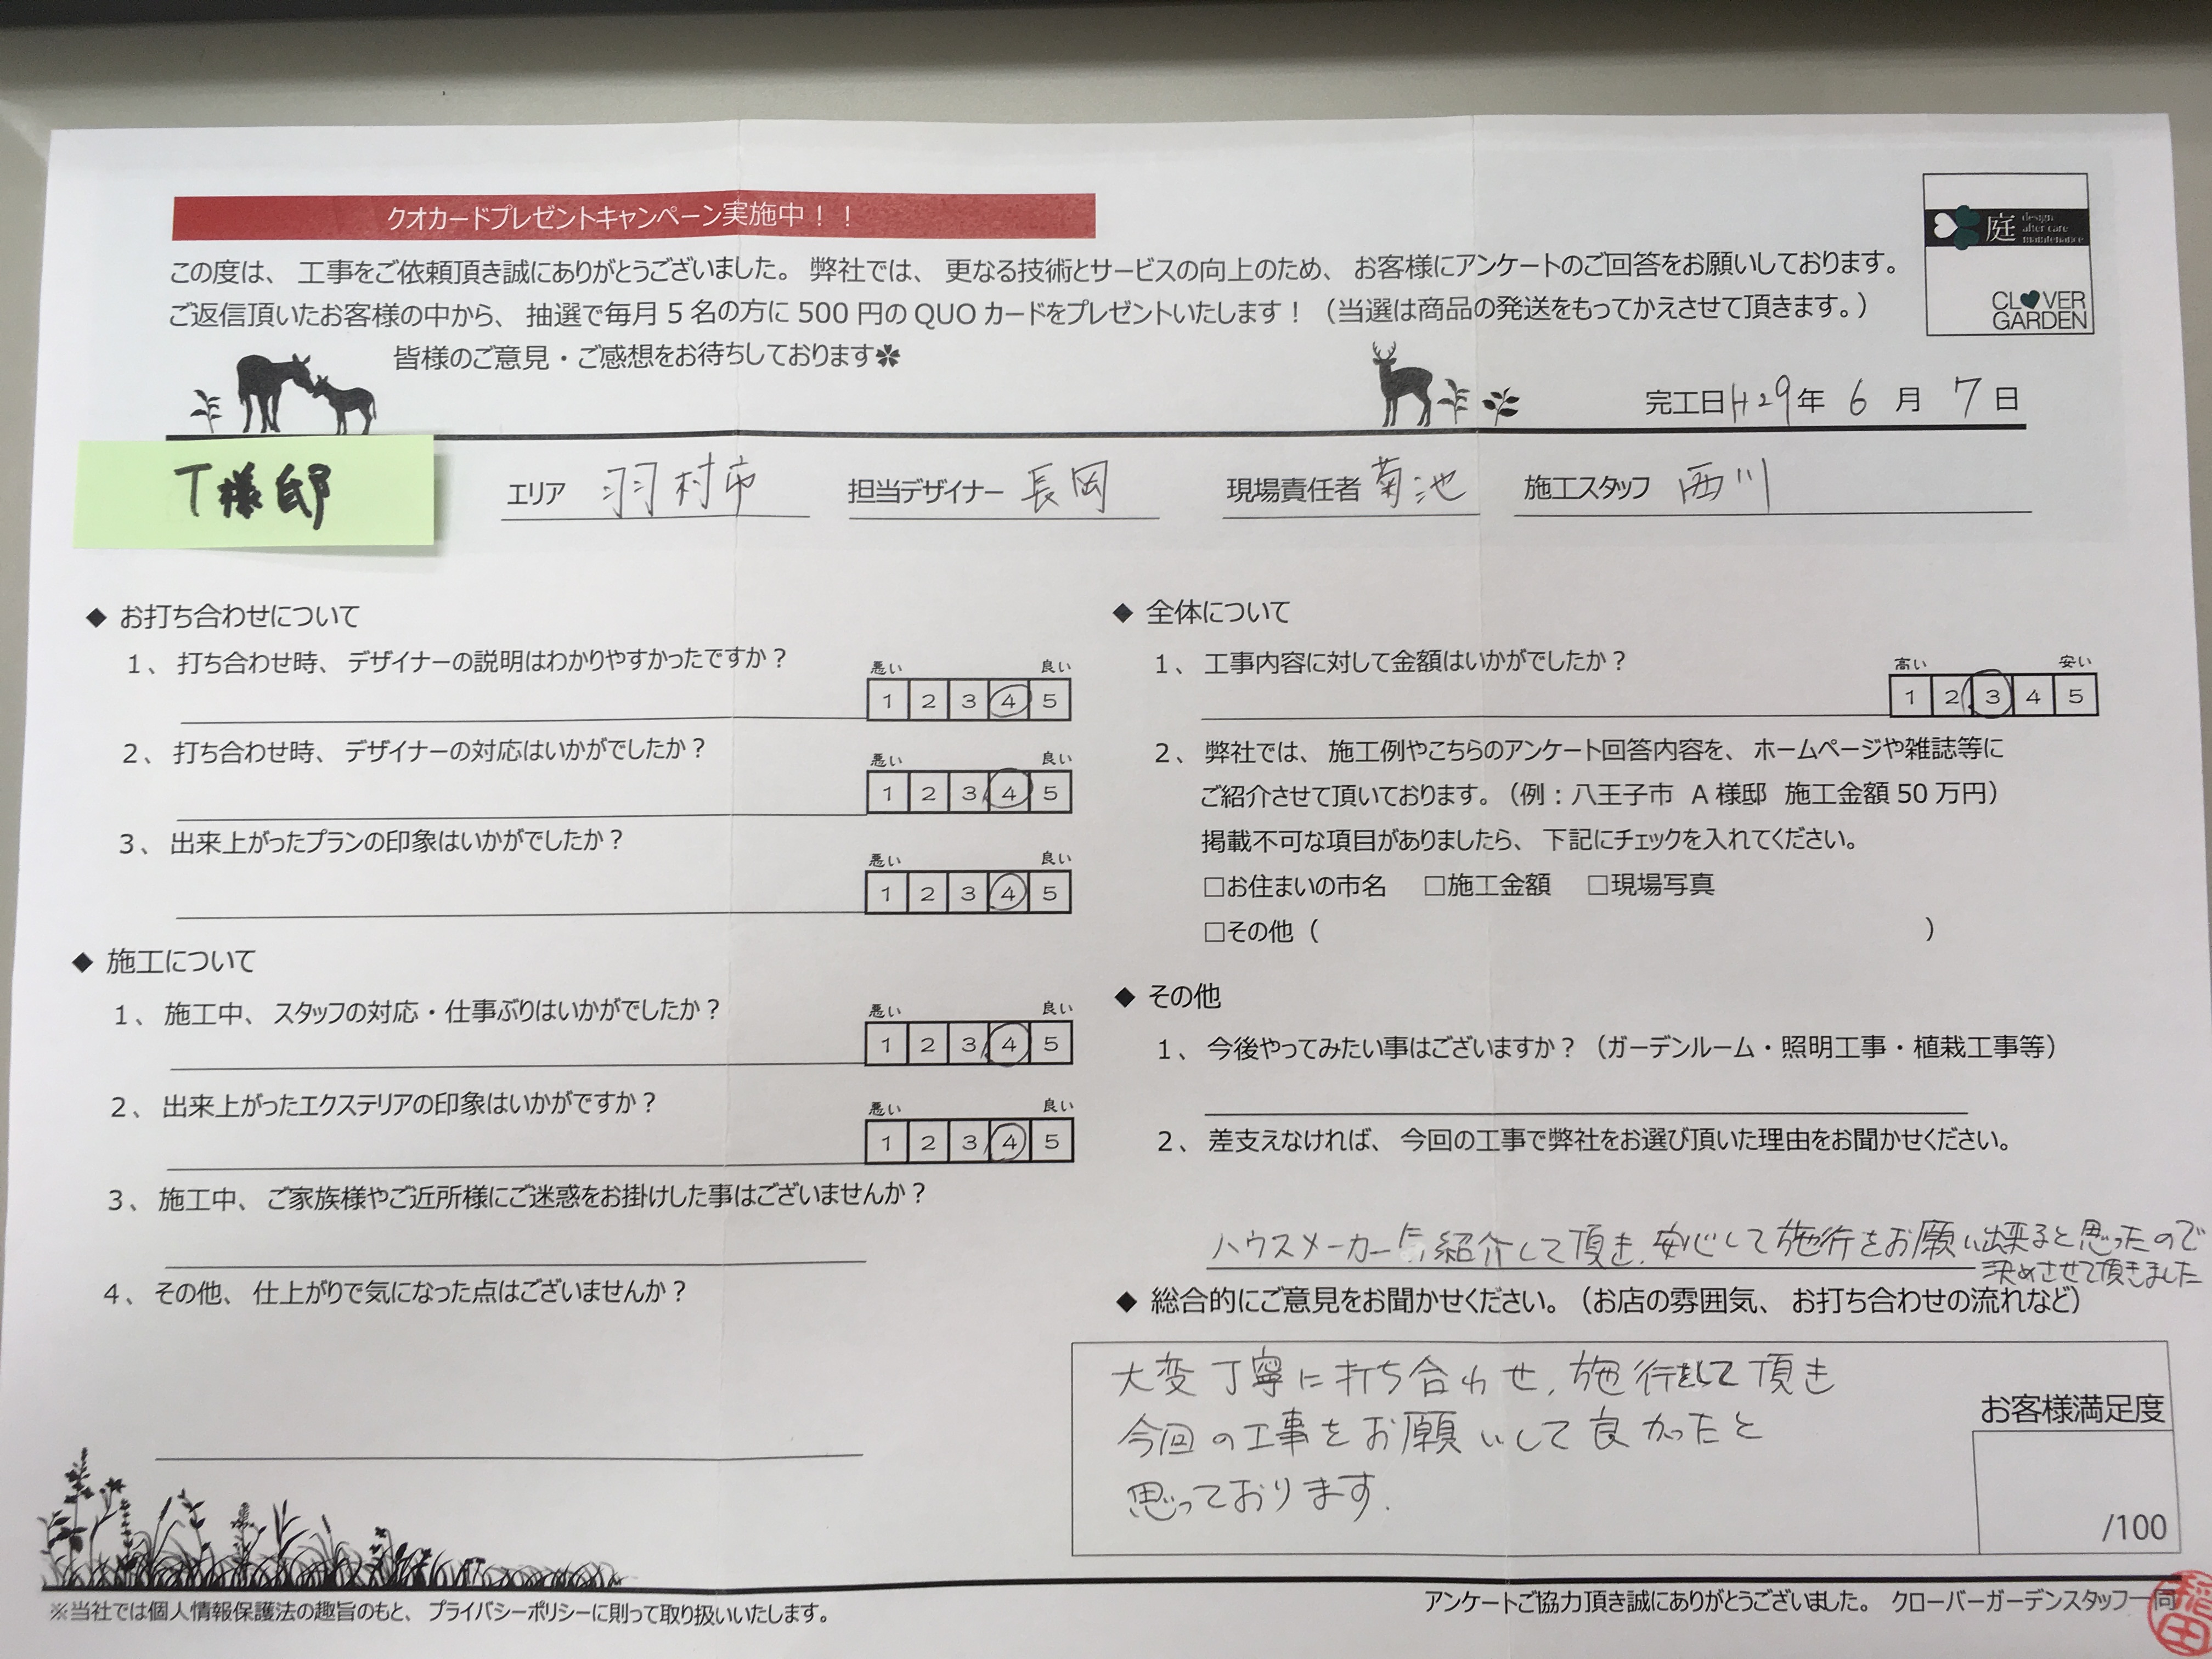 クオカードプレゼントキャンペーン実施中！！
この度は、工事をご依頼頂き誠にありがとうございました。弊社では、更なる技術とサービスの向上のため、お客様にアンケートのご回答をお願いしております。
ご返信頂いたお客様の中から、抽選で毎月5名の方に500円のQUOカードをプレゼントいたします！（当選は商品の発送をもってかえさせて頂きます。）
皆様のご意見・ご感想をお待ちしております✽
庭 design after care maintenance
CLOVER
GARDEN
完工日H29年 6月 7日
T様邸 エリア 羽村市 担当デザイナー 長岡 現場責任者 菊池 施工スタッフ 西川
◆ お打ち合わせについて
1、打ち合わせ時、デザイナーの説明はわかりやすかったですか？
悪い 良い
1 2 3 4 5
2、打ち合わせ時、デザイナーの対応はいかがでしたか？
悪い 良い
1 2 3 4 5
3、出来上がったプランの印象はいかがでしたか？
悪い 良い
1 2 3 4 5
◆ 施工について
1、施工中、スタッフの対応・仕事ぶりはいかがでしたか？
悪い 良い
1 2 3 4 5
2、出来上がったエクステリアの印象はいかがですか？
悪い 良い
1 2 3 4 5
3、施工中、ご家族様やご近所様にご迷惑をお掛けした事はございませんか？
4、その他、仕上がりで気になった点はございませんか？
◆ 全体について
1、工事内容に対して金額はいかがでしたか？
高い 安い
1 2 3 4 5
2、弊社では、施工例やこちらのアンケート回答内容を、ホームページや雑誌等に
ご紹介させて頂いております。（例：八王子市 A様邸 施工金額50万円）
掲載不可な項目がありましたら、下記にチェックを入れてください。
□お住まいの市名 □施工金額 □現場写真
□その他（ ）
◆ その他
1、今後やってみたい事はございますか？（ガーデンルーム・照明工事・植栽工事等）
2、差支えなければ、今回の工事で弊社をお選び頂いた理由をお聞かせください。
ハウスメーカー 紹介して頂き、安心して施行をお願い出来ると思ったので
決めさせて頂きました
◆ 総合的にご意見をお聞かせください。（お店の雰囲気、お打ち合わせの流れなど）
大変丁寧に打ち合わせ、施行をして頂き
今回の工事をお願いして良かったと
思っております。
お客様満足度
/100
※当社では個人情報保護法の趣旨のもと、プライバシーポリシーに則って取り扱いいたします。
アンケートご協力頂き誠にありがとうございました。 クローバーガーデンスタッフ一同
稲田